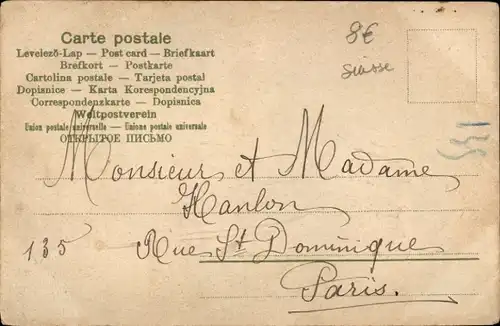 Carte postale
Levelező-Lap — Post card — Briefkaart
Brefkort — Postkarte
Cartolina postale — Tarjeta postal
Dopisnice — Karta Korespondencyjna
Correspondenzkarte — Dopisnica
Weltpostverein
Union postale universelle — Unione postale universale
ОТКРЫТОЕ ПИСЬМО
8€
Suisse
135
Monsieur et Madame
Hanlon
135 Rue St Dominique
Paris.